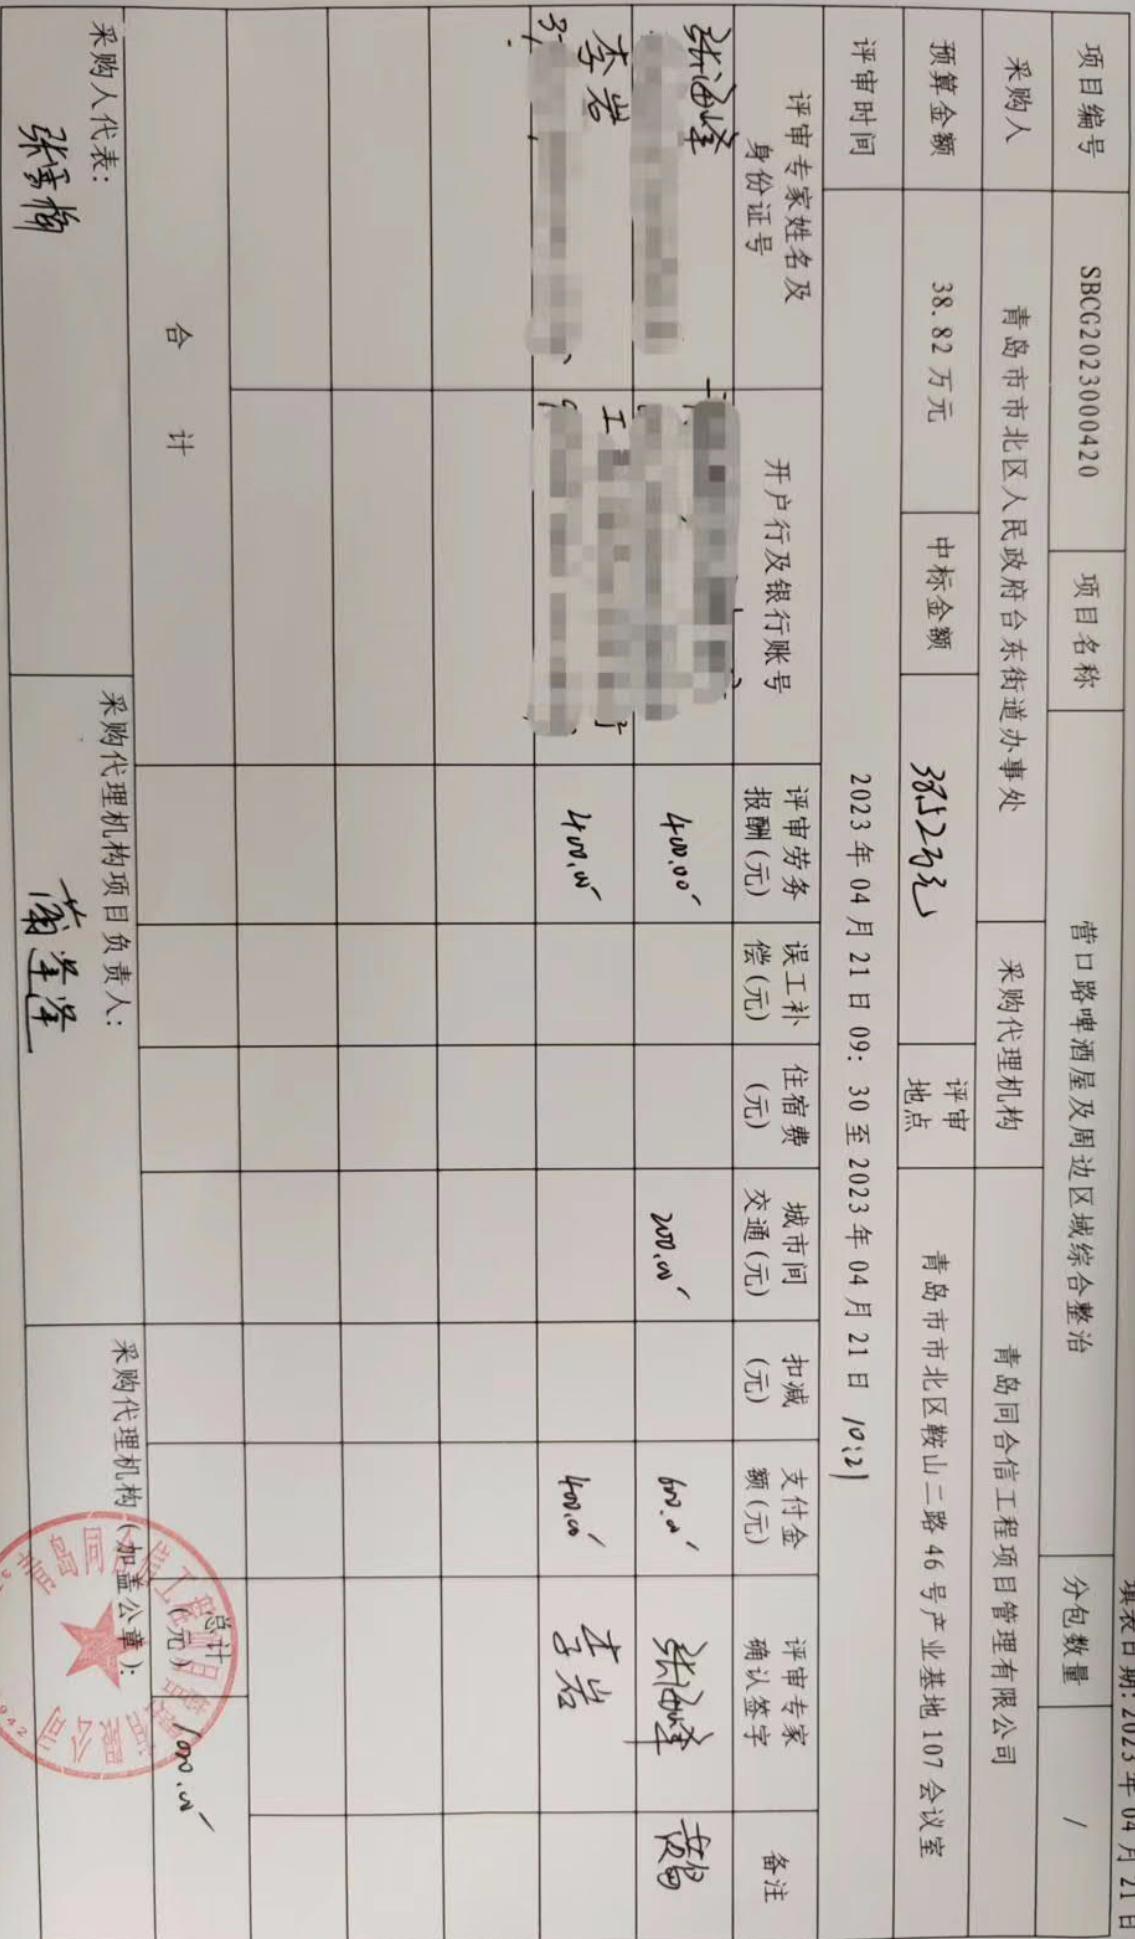 填表日期：2023年04月21日
项目编号 SBCG2023000420 项目名称 营口路啤酒屋及周边区域综合整治 分包数量 /
采购人 青岛市市北区人民政府台东街道办事处 采购代理机构 青岛同合信工程项目管理有限公司
预算金额 38.82万元 中标金额 评审地点 青岛市市北区鞍山二路46号产业基地107会议室
评审时间 2023年04月21日09：30至2023年04月21日 10:21
评审专家姓名及身份证号 开户行及银行账号 评审劳务报酬(元) 误工补偿(元) 住宿费(元) 城市间交通(元) 扣减(元) 支付金额(元) 评审专家确认签字 备注
张海峰 400.00 200.00 600.00 张海峰
李岩 工 400.00 400.00 李岩
合计 总计(元) 1000.00
采购人代表： 采购代理机构项目负责人： 采购代理机构(加盖公章)：
青岛同合信工程项目管理有限公司